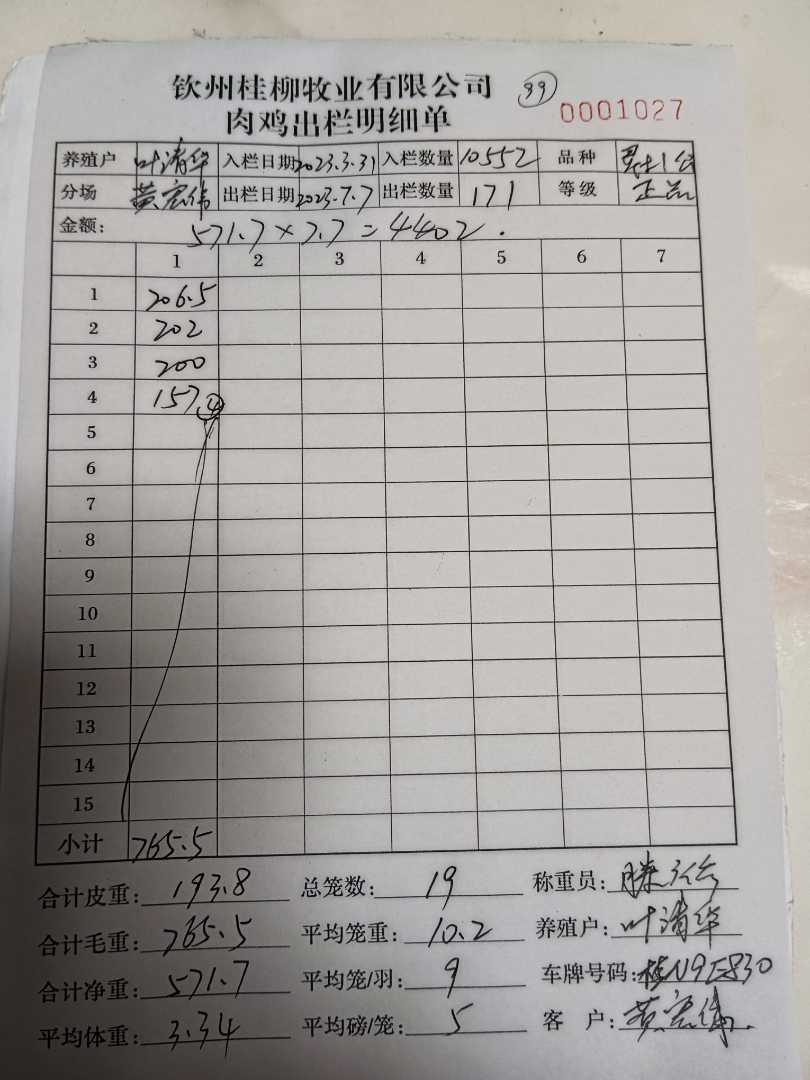 钦州桂柳牧业有限公司 99 0001027
肉鸡出栏明细单
养殖户 叶清华 入栏日期 2023.3.31 入栏数量 10552 品种
分场 黄宏伟 出栏日期 2023.7.7 出栏数量 171 等级 正品
金额: 571.7×7.7=4402.
1 2 3 4 5 6 7
1 206.5
2 202
3 200
4 157 ④
5
6
7
8
9
10
11
12
13
14
15
小计 765.5
合计皮重: 193.8 总笼数: 19 称重员:
合计毛重: 765.5 平均笼重: 10.2 养殖户: 叶清华
合计净重: 571.7 平均笼/羽: 9 车牌号码: 桂N9E830
平均体重: 3.34 平均磅/笼: 5 客 户: 黄宏伟